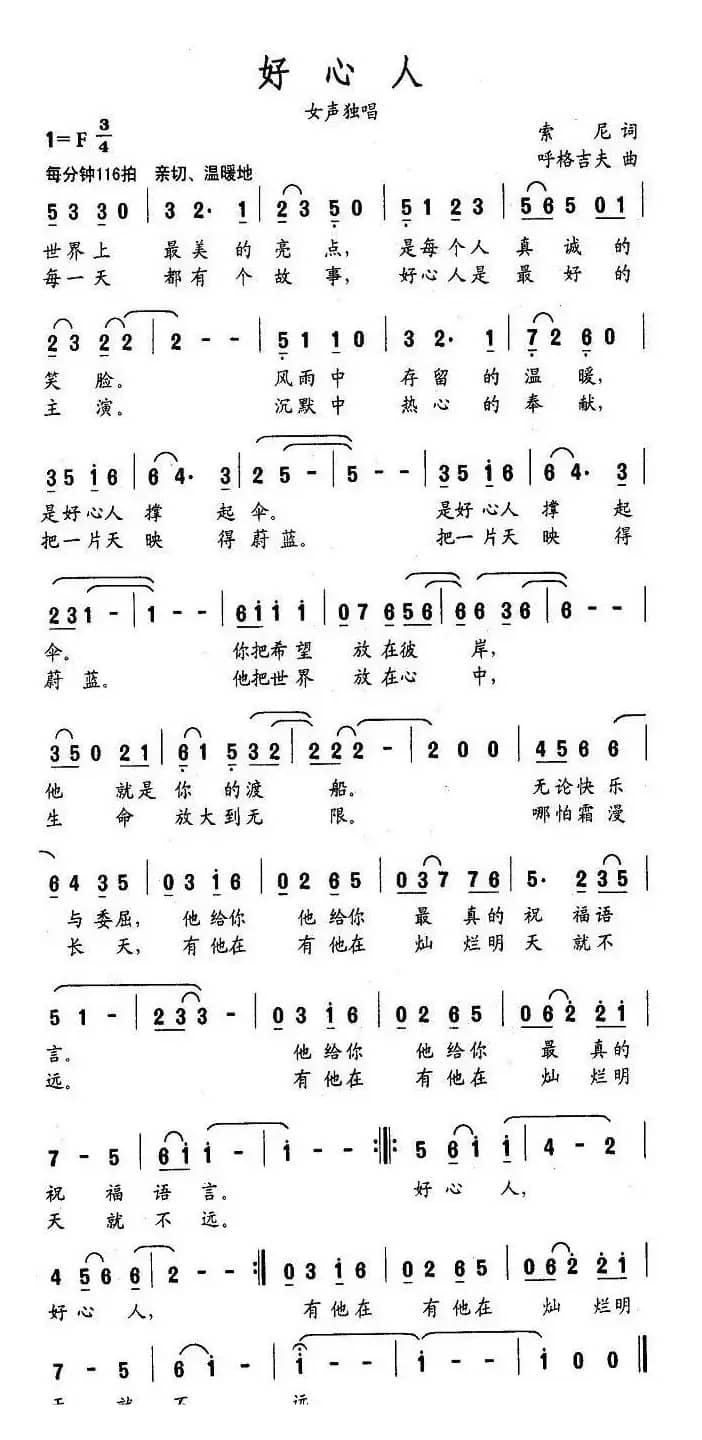 好心人
女声独唱
1=F 3/4
索尼 词
每分钟116拍 亲切、温暖地
呼格吉夫 曲
5 3 3 0 | 3 2· 1 | 2 3 5 0 | 5 1 2 3 | 5 6 5 0 1 |
世界上 最美的亮点, 是每个人真诚的
每一天 都有个故事, 好心人是最好的
2 3 2 2 | 2 - - | 5 1 1 0 | 3 2· 1 | 7 2 6 0 |
笑脸。 风雨中 存留的温暖,
主演。 沉默中 热心的奉献,
3 5 i 6 | 6 4· 3 | 2 5 - | 5 - - | 3 5 i 6 | 6 4· 3 |
是好心人撑起伞。 是好心人撑起
把一片天映得蔚蓝。 把一片天映得
2 3 1 - | 1 - - | 6 i i i | 0 7 6 5 6 | 6 6 3 6 | 6 - - |
伞。 你把希望 放在彼岸,
蔚蓝。 他把世界 放在心中,
3 5 0 2 1 | 6 1 5 3 2 | 2 2 2 - | 2 0 0 | 4 5 6 6 |
他 就是你的渡船。 无论快乐
生 命 放大到无限。 哪怕霜漫
6 4 3 5 | 0 3 i 6 | 0 2 6 5 | 0 3 7 7 6 | 5· 2 3 5 |
与委屈, 他给你 他给你 最真的祝福语
长天, 有他在 有他在 灿烂明天就不
5 1 - | 2 3 3 - | 0 3 i 6 | 0 2 6 5 | 0 6 2 2 i |
言。 他给你 他给你 最真的
远。 有他在 有他在 灿烂明
7 - 5 | 6 i i - | i - - :||: 5 6 i i | 4 - 2 |
祝福语言。 好心人,
天就不远。
4 5 6 6 | 2 - - :|| 0 3 i 6 | 0 2 6 5 | 0 6 2 2 i |
好心人, 有他在 有他在 灿烂明
7 - 5 | 6 i - | i - - | i - - | i 0 0 ||
天就不远